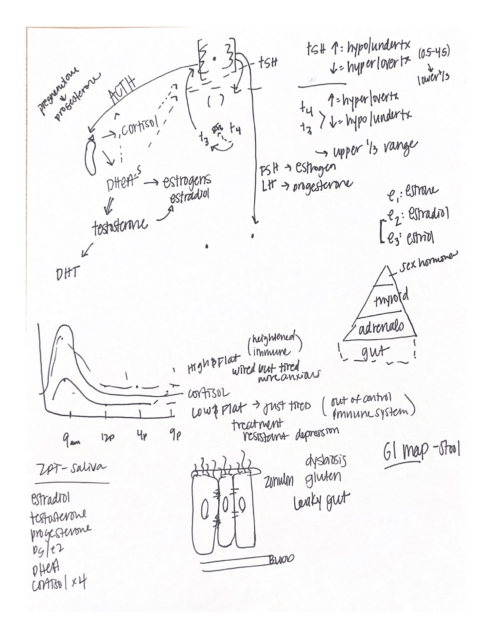 TSH ↑= hypo/undertx
↓= hyper/overtx
(0.5-4.5)
↓
lower 1/3
t4
t3
↑= hyper/overtx
↓= hypo/undertx
→ upper 1/3 range
TSH
ACTH
pregnenolone
↓
progesterone
→ cortisol
t3
t4
DHEA-S → estrogens
estradiol
testosterone
DHT
FSH → estrogen
LH → progesterone
e1: estrone
e2: estradiol
e3: estriol
sex hormone
thyroid
adrenals
gut
High & Flat (heightened immune
wired but tired
more anxious
cortisol
Low & Flat → just tired (out of control
immune system)
treatment
resistant depression
9am 12p 4p 9p
ZRT - saliva
estradiol
testosterone
progesterone
pg/e2
DHEA
cortisol x4
zonulin
dysbiosis
gluten
leaky gut
Blood
GI map - stool